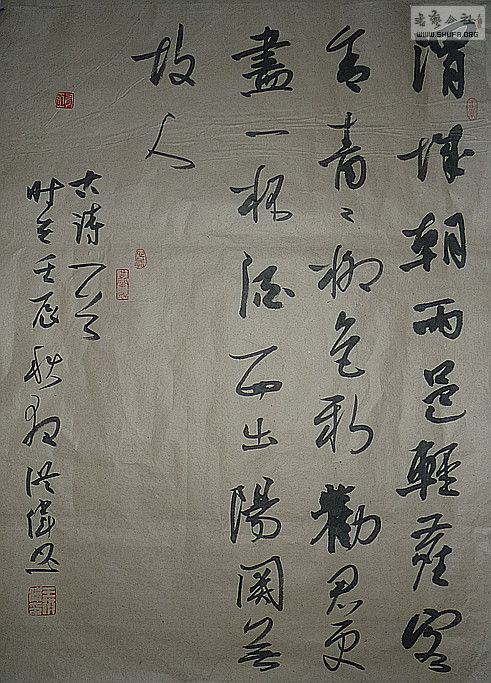 渭城朝雨邑輕塵客
舍青々柳色新勸君更
盡一杯酒西出陽關無
故人
古詩一首
時在壬辰秋洪偉書
书艺公社
WWW.SHUFA.ORG